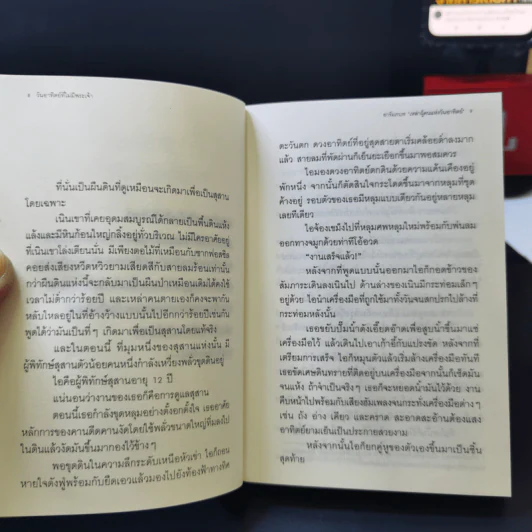 ๘ วันอาทิตย์ที่ไม่มีพระเจ้า
ที่นั่นเป็นผืนดินที่ดูเหมือนจะเกิดมาเพื่อเป็นสุสาน
โดยเฉพาะ
เนินเขาที่เคยอุดมสมบูรณ์ได้กลายเป็นพื้นดินแห้ง
แล้งและมีหินก้อนใหญ่กลิ้งอยู่ทั่วบริเวณ ไม่มีใครอาศัยอยู่
ที่เนินเขาโล่งเตียนนั่น มีเพียงตอไม้ที่เหมือนกับซากฟอสซิล
คอยส่งเสียงหวีดหวิวยามเสียดสีกับสายลมร้อนเท่านั้น
กว่าผืนดินแห่งนี้จะกลับมาเป็นผืนป่าเหมือนเดิมได้คงใช้
เวลาไม่ต่ำกว่าร้อยปี และเหล่าคนตายเองก็คงจะพากัน
หลับใหลอยู่ในที่อ้างว้างแบบนั้นไปอีกกว่าร้อยปีเช่นกัน
พูดได้ว่ามันเป็นที่ๆ เกิดมาเพื่อเป็นสุสานโดยแท้จริง
และในตอนนี้ ที่มุมหนึ่งของสุสานแห่งนั้น มี
ผู้พิทักษ์สุสานตัวน้อยคนหนึ่งกำลังเหวี่ยงพลั่วขุดดินอยู่
ไอคือผู้พิทักษ์สุสานอายุ 12 ปี
แน่นอนว่างานของเธอก็คือการดูแลสุสาน
ตอนนี้เธอกำลังขุดหลุมอย่างตั้งอกตั้งใจ เธออาศัย
หลักการของคานดีดคานงัดโดยใช้พลั่วขนาดใหญ่ทิ่มลงไป
ในดินแล้วงัดมันขึ้นมากองไว้ข้างๆ
พอขุดดินในความลึกระดับเหนือหัวเข่า ไอก็ถอน
หายใจดังฟู่พร้อมกับยืดเอวแล้วมองไปยังท้องฟ้าทางทิศ
ตะวันตก ดวงอาทิตย์ที่อยู่สุดสายตาเริ่มคล้อยต่ำลงมาก
แล้ว สายลมที่พัดผ่านก็เย็นยะเยือกขึ้นมาพอสมควร
ไอมองดวงอาทิตย์ตกดินด้วยความแค้นเคืองอยู่
พักหนึ่ง จากนั้นก็ตัดสินใจกระโดดขึ้นมาจากหลุมที่ขุด
ค้างอยู่ รอบตัวของเธอมีหลุมแบบเดียวกันอยู่หลายหลุม
เลยทีเดียว
ไอจ้องเขม็งไปที่หลุมศพหลุมใหม่พร้อมกับพ่นลม
ออกทางจมูกด้วยท่าทีโอ้อวด
“งานเสร็จแล้ว!”
หลังจากที่พูดแบบนั้นออกมาไอก็กอดข้าวของ
สัมภาระเดินลงเนินไป ด้านล่างของเนินมีกระท่อมเล็กๆ
อยู่ด้วย ไอนำเครื่องมือที่ถูกใช้มาทั้งวันจนสกปรกไปล้างที่
กระท่อมหลังนั้น
เธอขยับปั๊มน้ำดังเอี๊ยดอ๊าดเพื่อสูบน้ำขึ้นมาแช่
เครื่องมือไว้ แล้วเดินไปเอาเก้าอี้กับแปรงขัด หลังจากที่
เตรียมการเสร็จ ไอก็หมุนตัวแล้วเริ่มล้างเครื่องมือทันที
เธอขัดเศษดินทรายที่ติดอยู่บนเครื่องมือจากนั้นก็เช็ดมัน
จนแห้ง ถ้าจำเป็นจริงๆ เธอก็จะหยอดน้ำมันไว้ด้วย งาน
คืบหน้าไปพร้อมกับเสียงฮัมเพลงจนกระทั่งเครื่องมือต่างๆ
เช่น ถัง อ่าง เคียว และคราด สะอาดสะอ้านต้องแสง
อาทิตย์ยามเย็นเป็นประกายสวยงาม
หลังจากนั้นไอก็ยกคู่หูของตัวเองขึ้นมาเป็นชิ้น
สุดท้าย